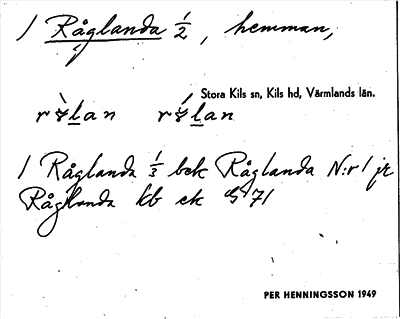 / Råglanda 1/2, hemman,
Stora Kils sn, Kils hd, Värmlands län.
/ Råglanda 1/3 bek Råglanda N:r 1 jr
Råglanda kb ek 71
PER HENNINGSSON 1949